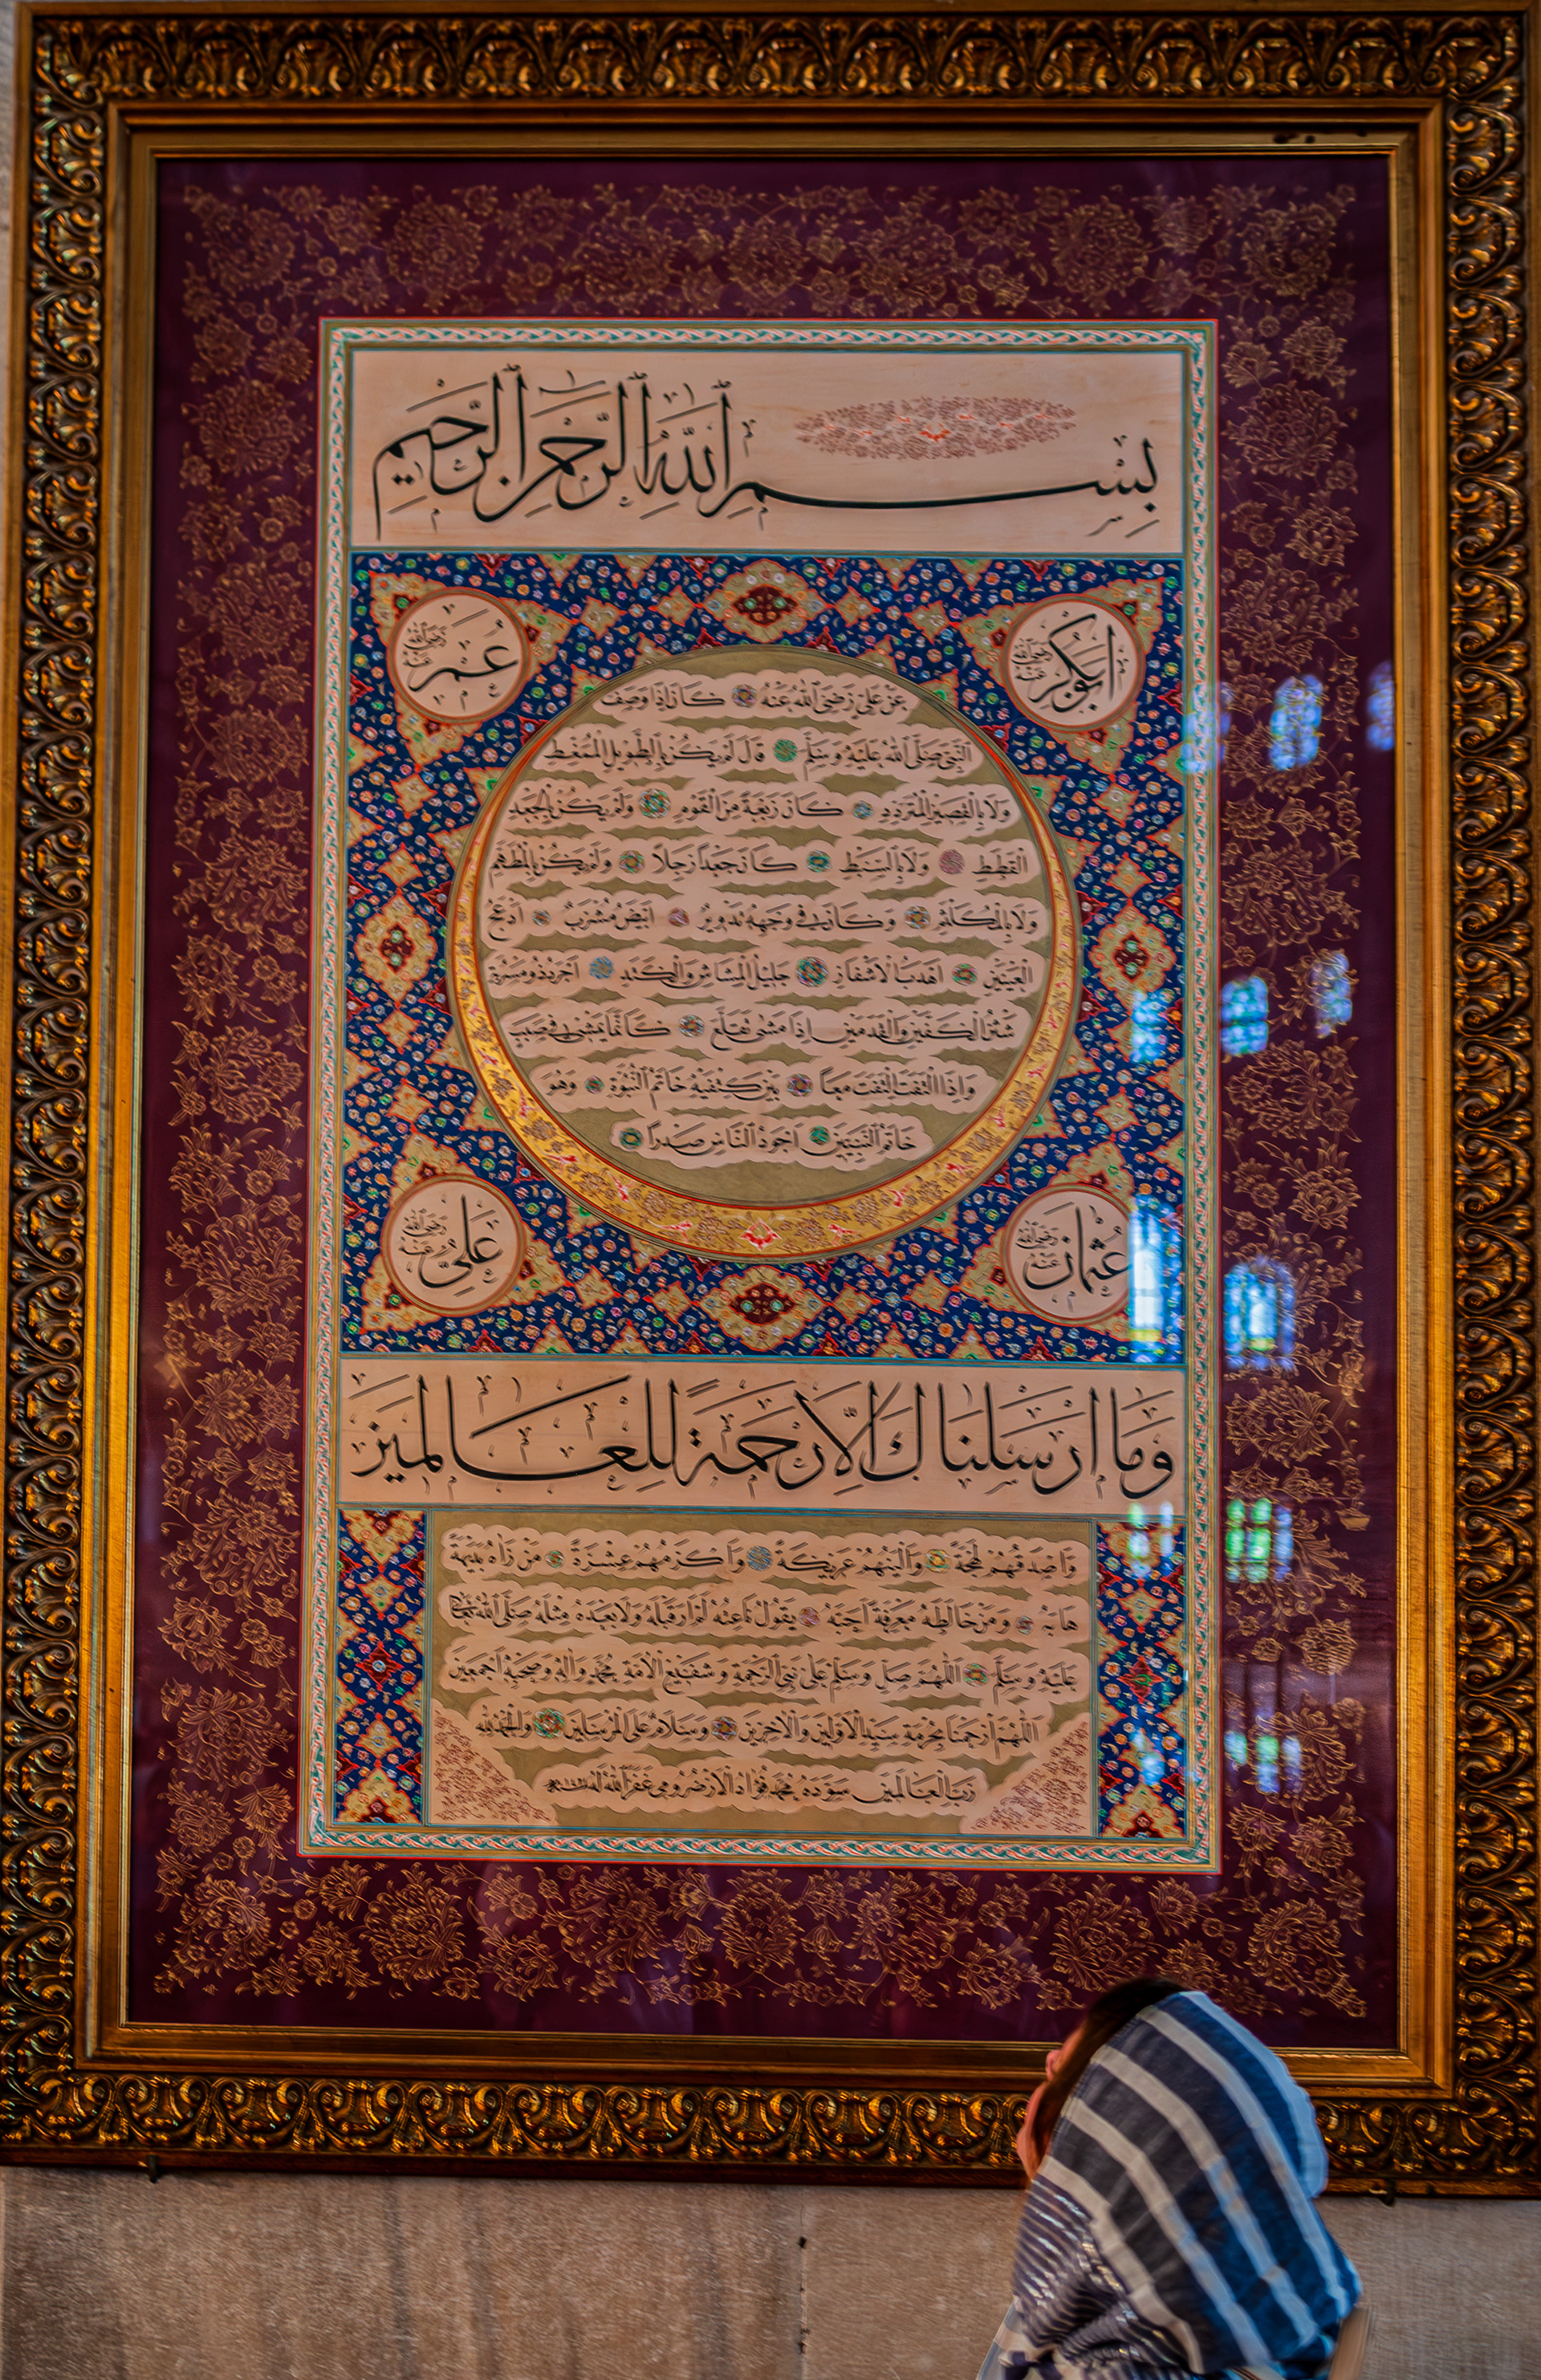 بِسْمِ اللّٰهِ الرَّحْمٰنِ الرَّحِيمِ
ابوبكر رضي الله عنه
عُمَر رضي الله عنه
عَنْ عَلِيٍّ رَضِيَ اللّٰهُ عَنْهُ كَانَ اِذَا وَصَفَ
النَّبِيَّ صَلَّى اللّٰهُ عَلَيْهِ وَسَلَّمَ قَالَ لَمْ يَكُنْ بِالطَّوِيلِ الْمُمَّغِطِ
وَلَا بِالْقَصِيرِ الْمُتَرَدِّدِ كَانَ رَبْعَةً مِنَ الْقَوْمِ وَلَمْ يَكُنْ بِالْجَعْدِ
الْقَطِطِ وَلَا بِالسَّبْطِ كَانَ جَعْداً رَجِلاً وَلَمْ يَكُنْ بِالْمُطَهَّمِ
وَلَا بِالْمُكَلْثَمِ وَكَانَ فِي وَجْهِهِ تَدْوِيرٌ اَبْيَضُ مُشْرَبٌ اَدْعَجُ
الْعَيْنَيْنِ اَهْدَبُ الْاَشْفَارِ جَلِيلُ الْمُشَاشِ وَالْكَتَدِ اَجْرَدُ ذُو مَسْرُبَةٍ
شَثْنُ الْكَفَّيْنِ وَالْقَدَمَيْنِ اِذَا مَشَى تَقَلَّعَ كَاَنَّمَا يَمْشِي فِي صَبَبٍ
وَاِذَا الْتَفَتَ الْتَفَتَ مَعاً بَيْنَ كَتِفَيْهِ خَاتَمُ النُّبُوَّةِ وَهُوَ
خَاتَمُ النَّبِيِّينَ اَجْوَدُ النَّاسِ صَدْراً
عُثْمَان رضي الله عنه
عَلِيّ رضي الله عنه
وَمَا اَرْسَلْنَاكَ اِلَّا رَحْمَةً لِلْعَالَمِينَ
وَاَصْدَقُهُمْ لَهْجَةً وَاَلْيَنُهُمْ عَرِيكَةً وَاَكْرَمُهُمْ عِشْرَةً مَنْ رَاٰهُ بَدِيهَةً
هَابَهُ وَمَنْ خَالَطَهُ مَعْرِفَةً اَحَبَّهُ يَقُولُ نَاعِتُهُ لَمْ اَرَ قَبْلَهُ وَلَا بَعْدَهُ مِثْلَهُ صَلَّى اللّٰهُ
عَلَيْهِ وَسَلَّمَ اَللّٰهُمَّ صَلِّ وَسَلِّمْ عَلَى نَبِيِّ الرَّحْمَةِ وَشَفِيعِ الْاُمَّةِ مُحَمَّدٍ وَاٰلِهِ وَصَحْبِهِ اَجْمَعِينَ
اَللّٰهُمَّ ارْحَمْنَا بِحُرْمَةِ سَيِّدِ الْاَوَّلِينَ وَالْاٰخِرِينَ وَسَلَامٌ عَلَى الْمُرْسَلِينَ وَالْحَمْدُ لِلّٰهِ
رَبِّ الْعَالَمِينَ سَوَّدَهُ مُحَمَّد فُؤَاد الْاَرْضُرُومِي غَفَرَ اللّٰهُ لَهُ